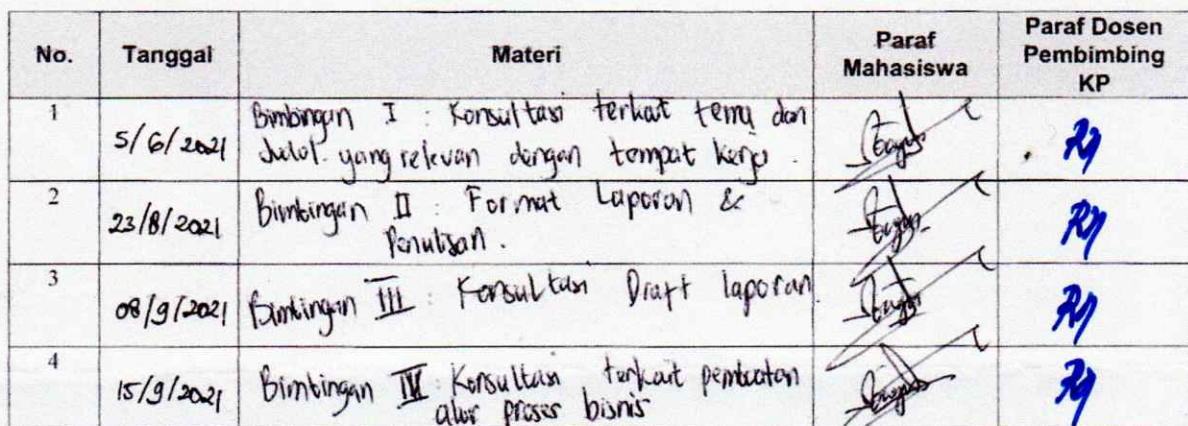 No. Tanggal Materi Paraf Mahasiswa Paraf Dosen Pembimbing KP
1 5/6/2021 Bimbingan I : Konsultasi terkait tema dan
Judul yang relevan dengan tempat kerja.
2 23/8/2021 Bimbingan II : Format Laporan &
Penulisan.
3 08/9/2021 Bimbingan III : Konsultasi Draft laporan
4 15/9/2021 Bimbingan IV : Konsultasi terkait pembuatan
alur proses bisnis